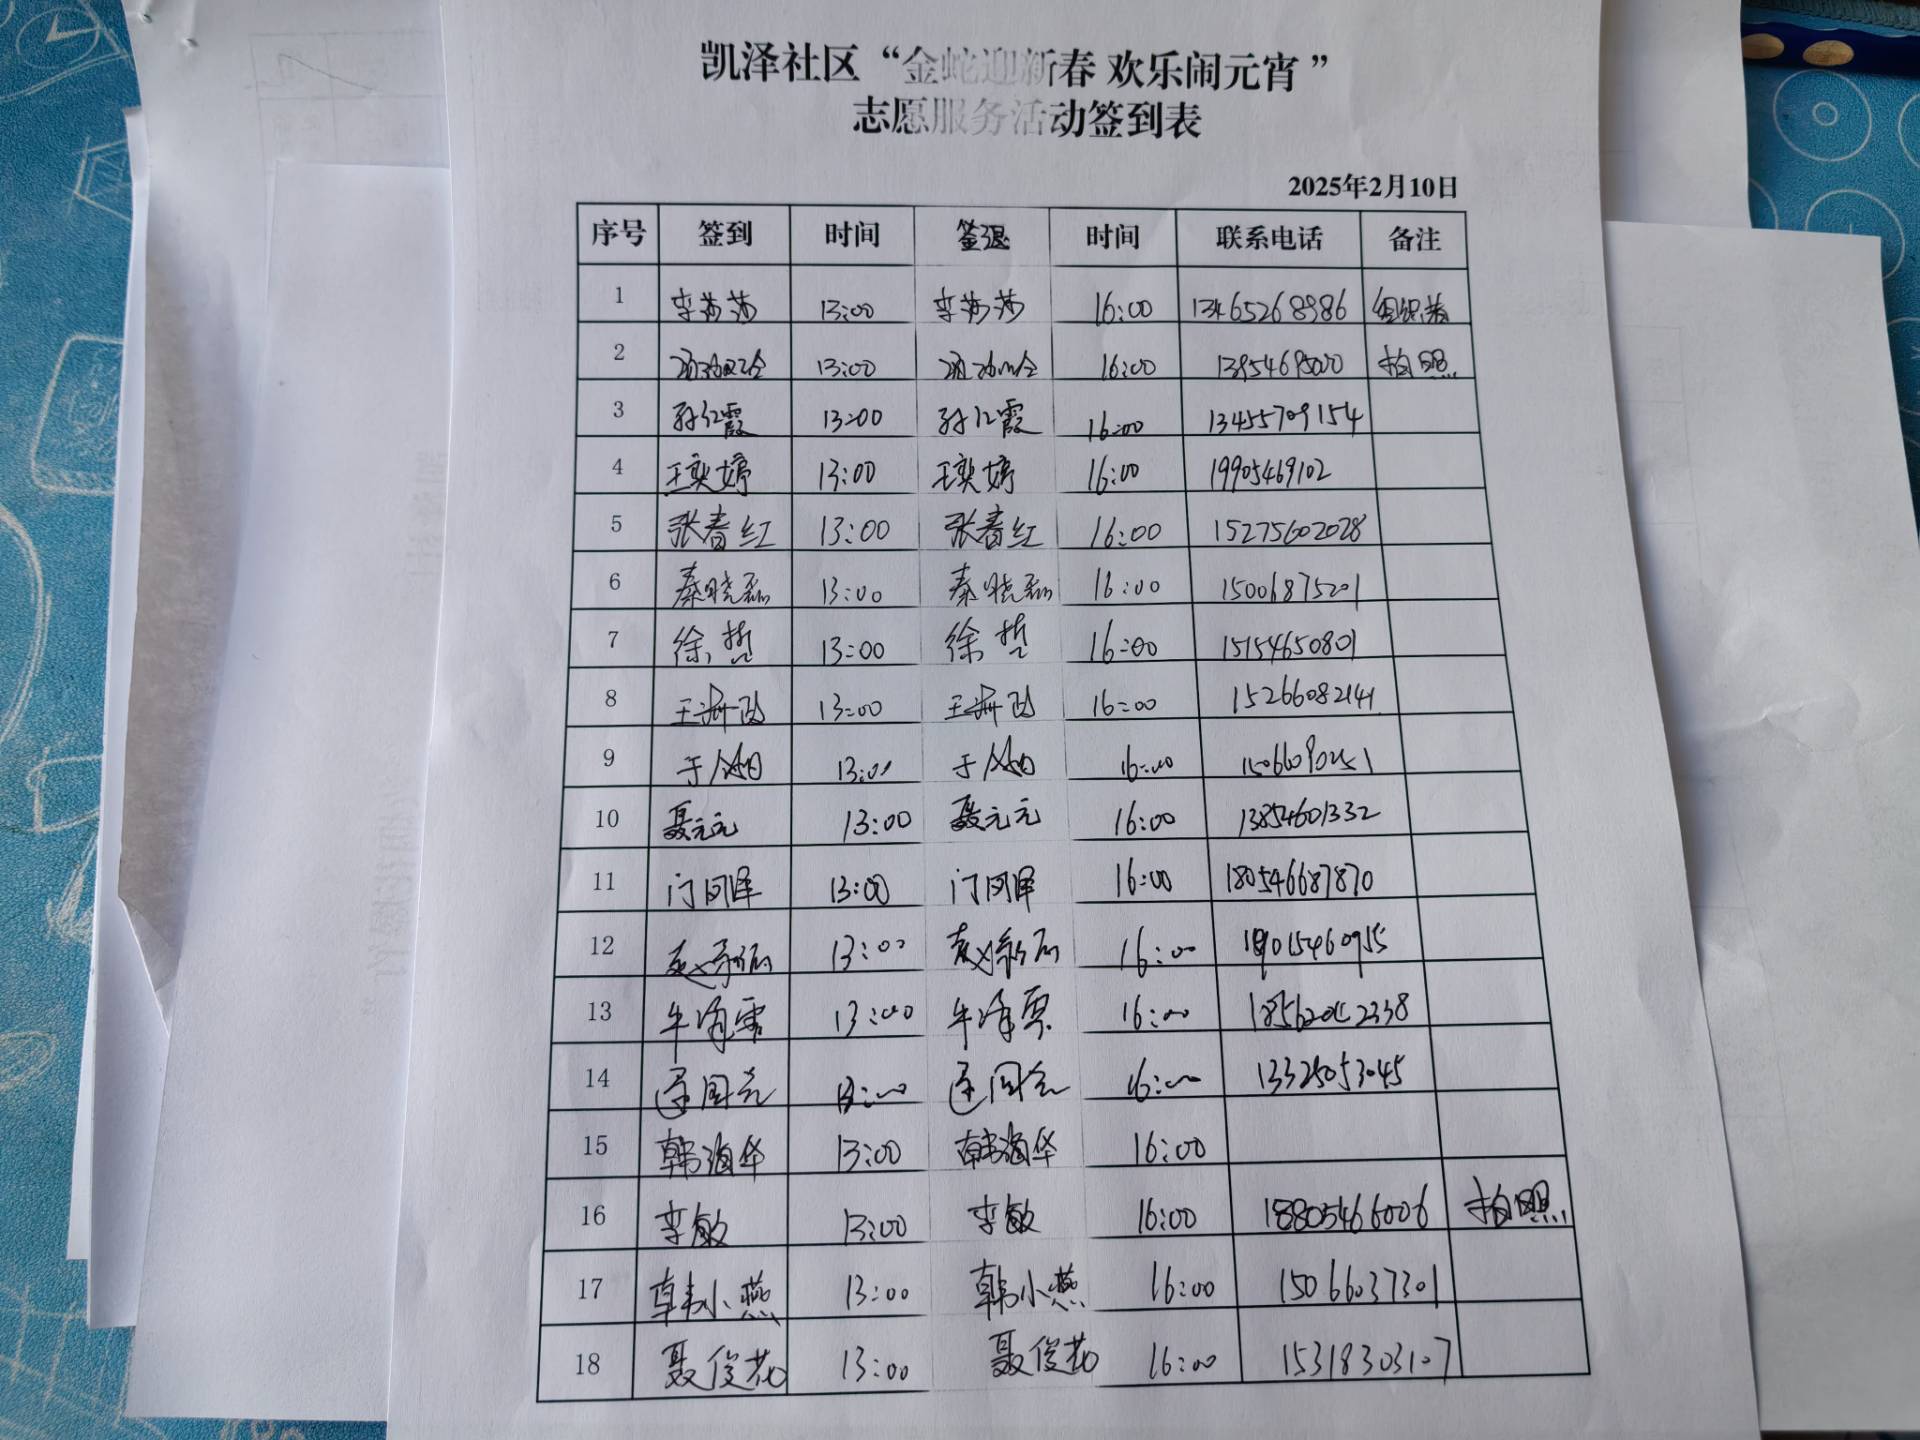 凯泽社区“金蛇迎新春 欢乐闹元宵”
志愿服务活动签到表
2025年2月10日
序号 签到 时间 签退 时间 联系电话 备注
1 李莎莎 13:00 李莎莎 16:00 13465268986 组织者
2 13:00 16:00 拍照
3 孙红霞 13:00 孙红霞 16:00 13455709154
4 王奕婷 13:00 王奕婷 16:00 19905469102
5 张春红 13:00 张春红 16:00 15275602028
6 秦晓磊 13:00 秦晓磊 16:00 15006875201
7 徐哲 13:00 徐哲 16:00 15154650801
8 王 13:00 王 16:00 15266082141
9 于 13:00 于 16:00
10 聂元元 13:00 聂元元 16:00 13854601332
11 门 13:00 门 16:00 180546687870
12 赵 13:00 赵 16:00
13 牛 13:00 牛 16:00
14 13:00 16:00 13325053045
15 韩海华 13:00 韩海华 16:00
16 李敏 13:00 李敏 16:00 18805466006 拍照
17 韩小燕 13:00 韩小燕 16:00 15066037301
18 聂俊花 13:00 聂俊花 16:00 15318303107